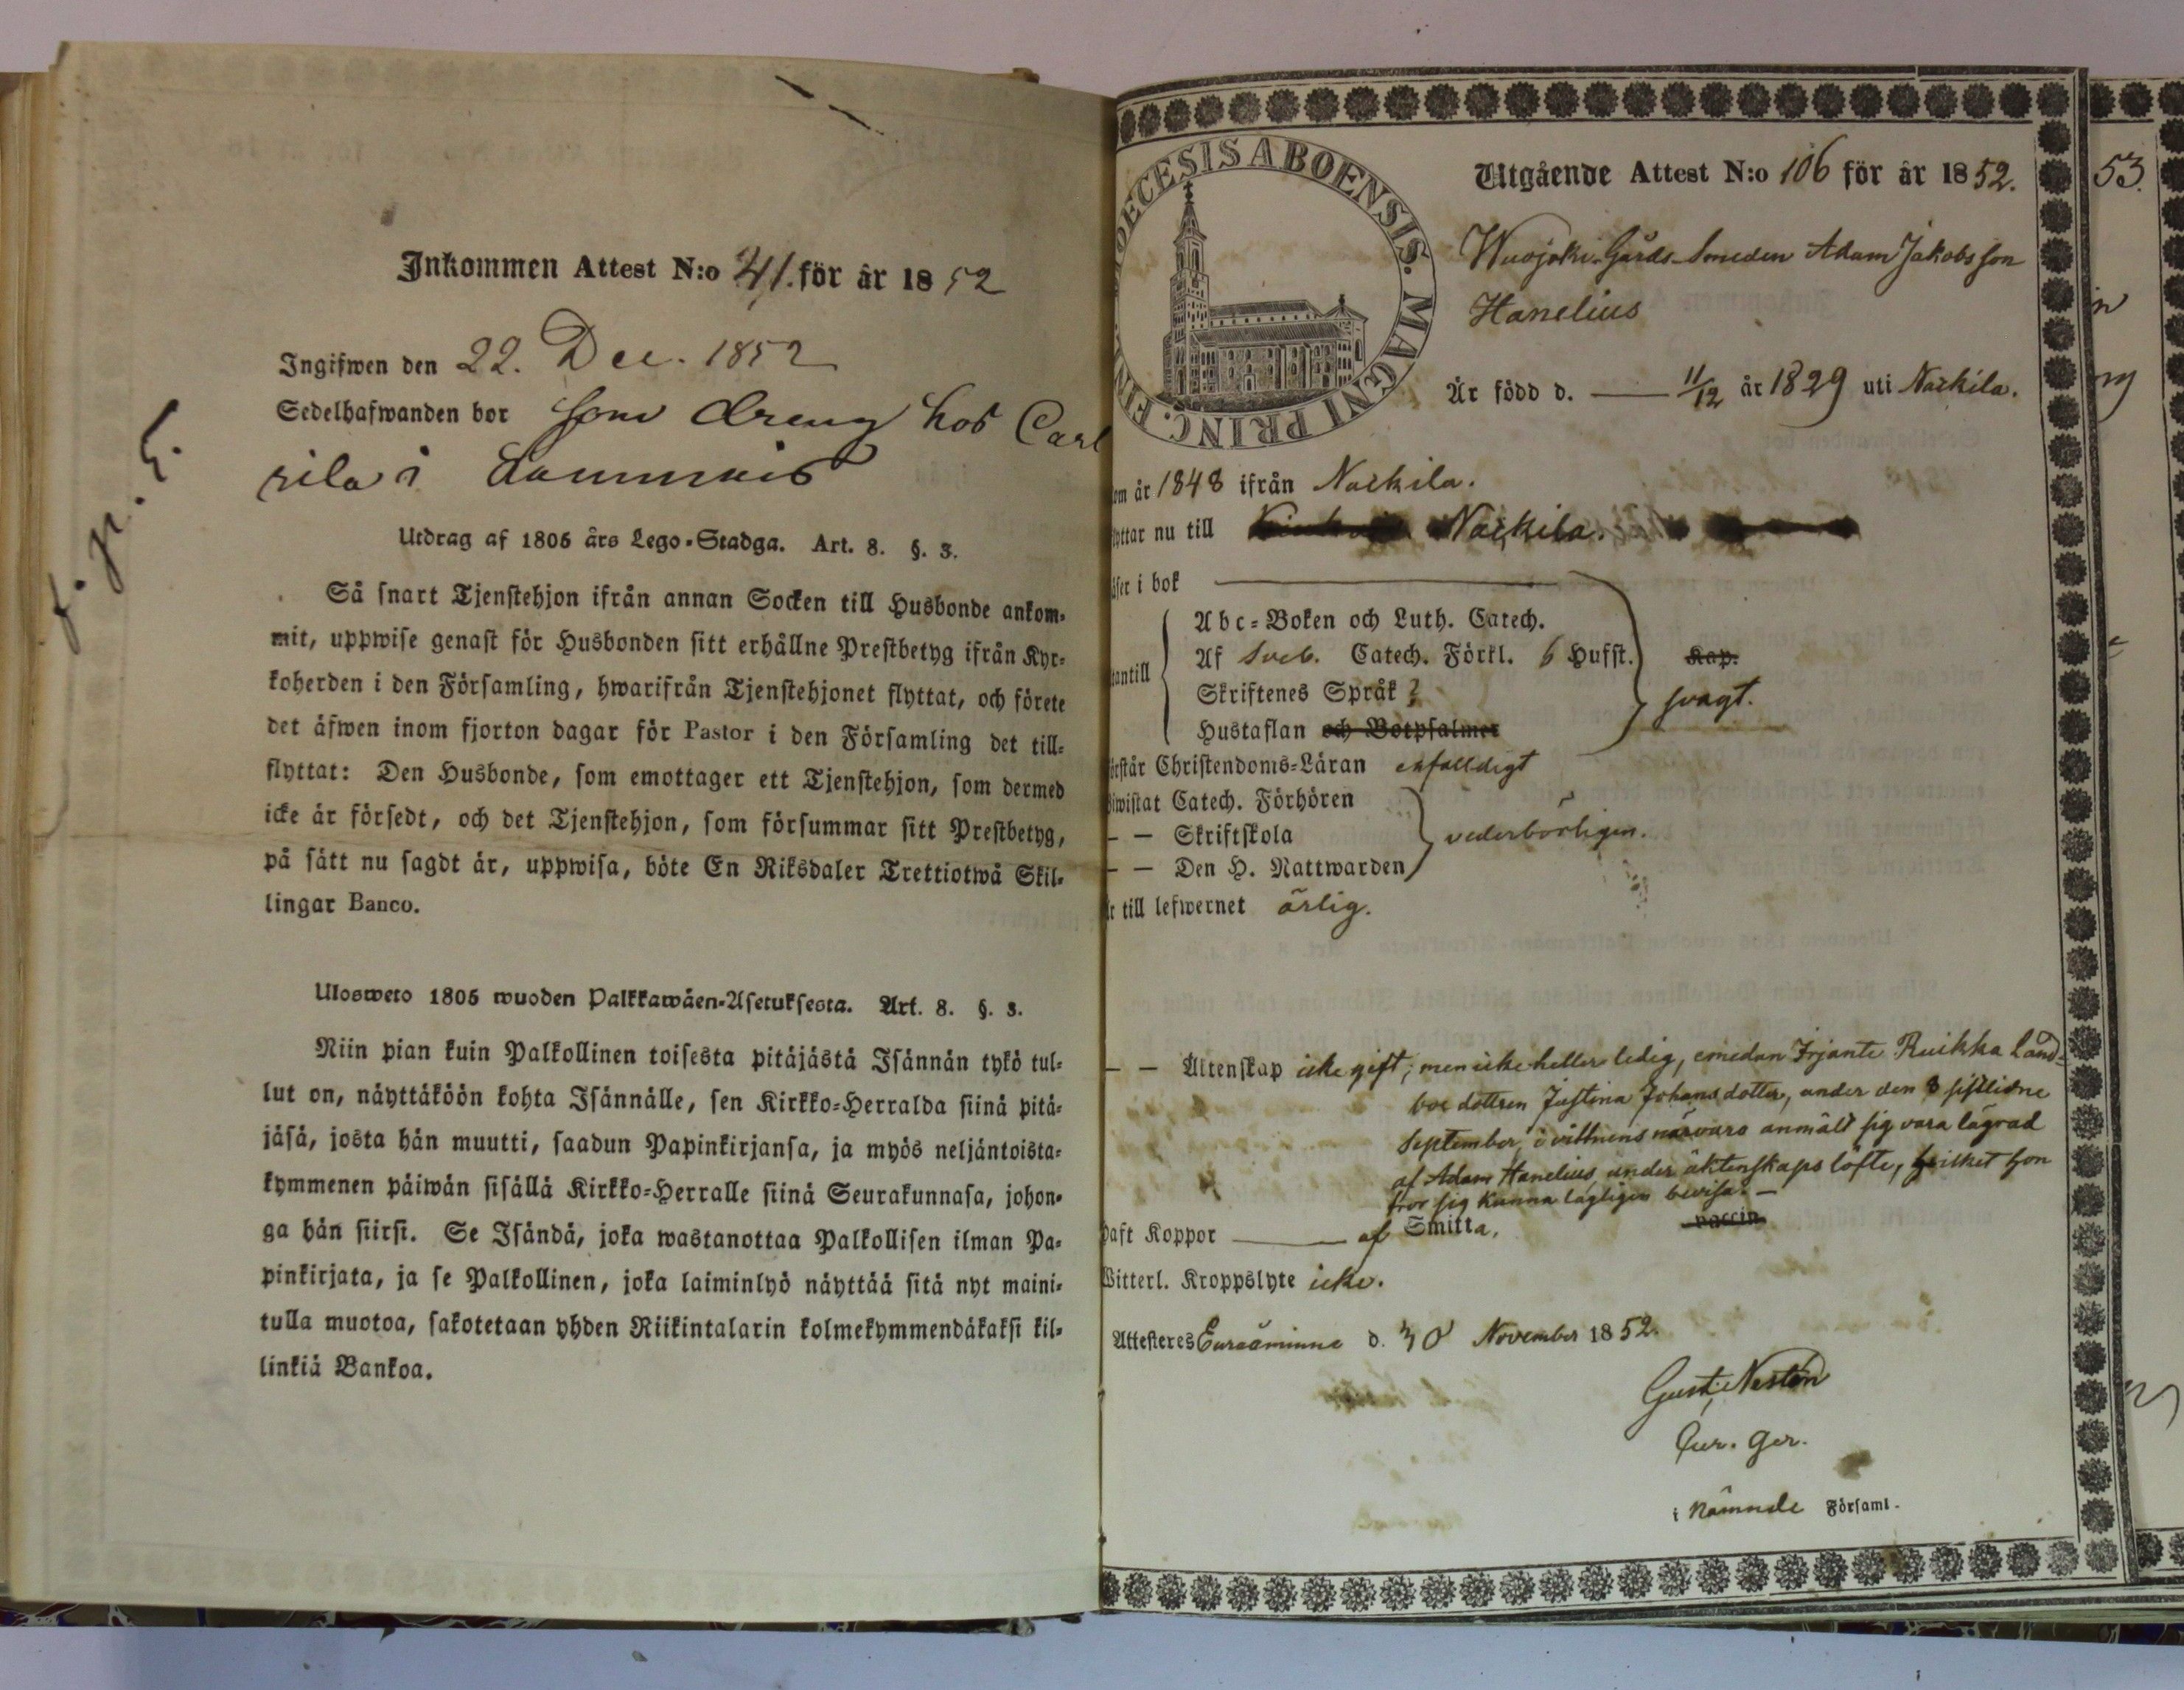 Inkommen Attest N:o 41. för år 1852
Ingifwen den 22. Dec. 1852
Sedelhafwanden bor som dreng hos Carl
rila i
f. p. 5.
Utdrag af 1805 års Lego-Stadga. Art. 8. §. 3.
Så snart Tjenstehjon ifrån annan Socken till Husbonde ankom-
mit, uppwise genast för Husbonden sitt erhållne Prestbetyg ifrån Kyr-
koherden i den Församling, hwarifrån Tjenstehjonet flyttat, och förete
det äfwen inom fjorton dagar för Pastor i den Församling det till-
flyttat: Den Husbonde, som emottager ett Tjenstehjon, som dermed
icke är försedt, och det Tjenstehjon, som försummar sitt Prestbetyg,
på sätt nu sagdt är, uppwisa, böte En Riksdaler Trettiotwå Skil-
lingar Banco.
Ulosweto 1805 wuoden Palkkawäen-Asetuksesta. Art. 8. §. 3.
Niin pian kuin Palkollinen toisesta pitäjästä Isännän tykö tul-
lut on, näyttäköön kohta Isännälle, sen Kirkko-Herralda siinä pitä-
jäsä, josta hän muutti, saadun Papinkirjansa, ja myös neljäntoista-
kymmenen päiwän sisällä Kirkko-Herralle siinä Seurakunnasa, johon-
ga hän siirsi. Se Isändä, joka wastanottaa Palkollisen ilman Pa-
pinkirjata, ja se Palkollinen, joka laiminlyö näyttää sitä nyt maini-
tulla muotoa, sakotetaan yhden Riikintalarin kolmekymmendäkaksi kil-
linkiä Bankoa.
DIOECESIS ABOENSIS. MAGNI PRINC. FINL.
Utgående Attest N:o 106 för år 1852.
Wuojoki Gårds-Smeden Adam Jakobsson
Hanelius
Är född d. — 11/12 år 1829 uti Nackila.
om år 1848 ifrån Nackila.
lyttar nu till Nackila.
äser i bok
Abc-Boken och Luth. Catech.
Af Sveb. Catech. Förkl. 6 Hufst. Kap.
tantill
Skriftenes Språk ? svagt.
Hustaflan och Botpsalmer
örstår Christendoms-Läran enfalldigt
Biwistat Catech. Förhören
— — Skriftskola vederbörligen.
— — Den H. Nattwarden
Är till lefwernet ärlig.
— — Äktenskap icke gift, men icke heller ledig, emedan Irjante Ruikka Land-
boe dottren Justina Johansdotter, under den 8 sistlidne
September, i vittnens närvaro anmält sig vara lägrad
af Adam Hanelius under äktenskaps löfte, hvilket hon
tror sig kunna lagligen bevisa. —
haft Koppor — af Smitta. vaccin
Witterl. Kroppslyte icke.
Attesteres Euraåminne d. 30 November 1852.
Gust. Nestön
Cur. ger.
i Nämnde Församl.
53.